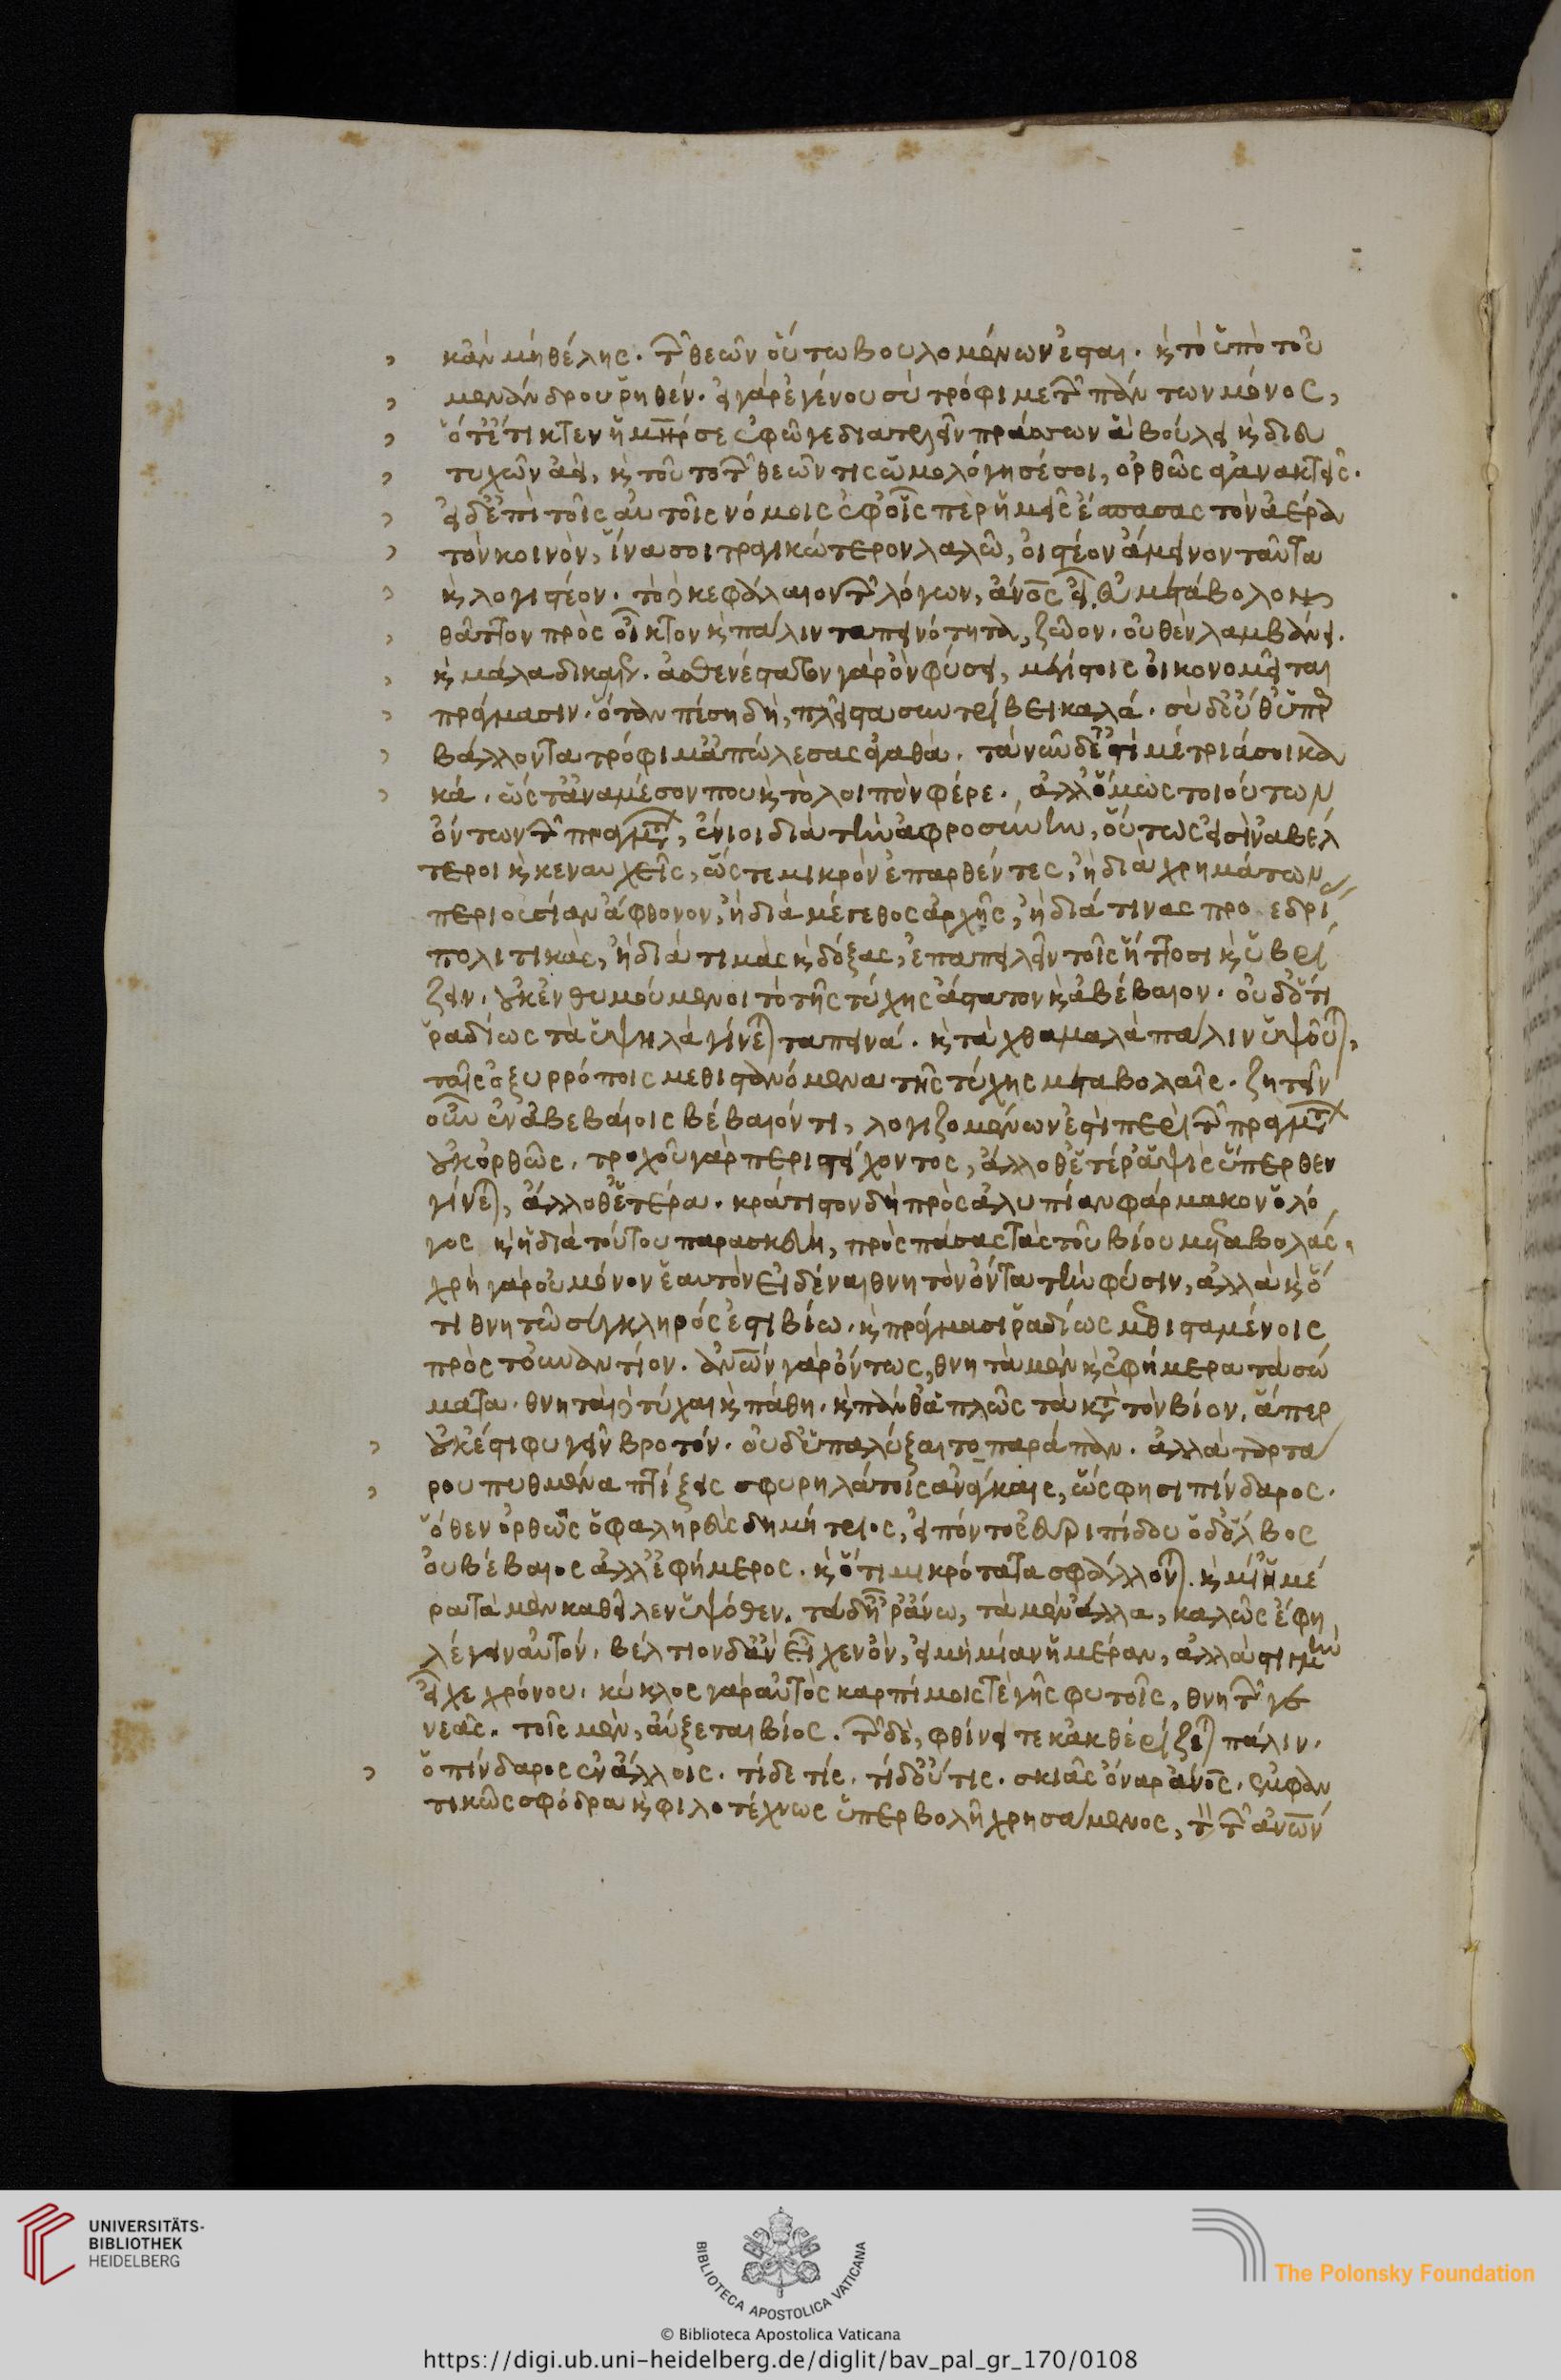 κἂν μὴ θέλης. τῶν θεῶν οὕτω βουλομένων ἔσται. καὶ τὸ ὑπὸ τοῦ
μενάνδρου ῥηθέν. εἰ γὰρ ἐγένου σὺ τρόφιμε τῶν πάντων μόνος,
ὅτ' ἔτικτεν ἡ μηρ σε ἐφῶ γε διατελεῖν πράσσων ἃ βούλει καὶ διευ
τυχῶν ἀεὶ, καὶ τοῦτο τῶν θεῶν τις ὡμολόγησέ σοι, ὀρθῶς ἀγανακτεῖς.
εἰ δ' ἐπὶ τοῖς αὐτοῖς νόμοις ἐφ' οἷς περ ἡμεῖς ἔσπασας τὸν ἀέρα
τὸν κοινὸν, ἵνα σοι τραγικώτερον λαλῶ, οἰστέον ἄμεινον ταῦτα
καὶ λογιστέον. τὸ δὲ κεφάλαιον τῶν λόγων, ἄνος εἶ. οὗ μετάβολον
θᾶττον πρὸς οἶκτον καὶ πάλιν ταπεινότητα, ζῶον. οὐθὲν λαμβάνει.
καὶ μάλα δικαίως. ἀσθενέστατον γὰρ ὂν φύσει, μεγίστοις οἰκονομεῖται
πράγμασιν. ὅταν πέση δὴ, πλεῖστα συντρίβει καλά. σὺ δ' οὔθ' ὑπερ
βάλλοντα τρόφιμ' ἀπώλεσας ἀγαθὰ. τὰ νῦν δ' ἐστὶ μέτριά σοι κα
κά. ὥστ' ἀναμέσον που καὶ τὸ λοιπὸν φέρε. ἀλλ' ὅμως τοιούτων
ὄντων τῶν πραγμάτων, ἔνιοι διὰ τὴν ἀφροσύνην, οὕτως εἰσὶν ἀβέλ
τεροι καὶ κεναυχεῖς, ὥστε μικρὸν ἐπαρθέντες, ἢ διὰ χρημάτων
περιουσίαν ἄφθονον, ἢ διὰ μέγεθος ἀρχῆς, ἢ διά τινας προεδρί
πολιτικὰς, ἢ διὰ τιμὰς καὶ δόξας, ἐπαπειλεῖν τοῖς ἥττοσι καὶ ὑβρί
ζειν. οὐκ ἐνθυμούμενοι τὸ τῆς τύχης ἄστατον καὶ ἀβέβαιον. οὐδ' ὅτι
ῥαδίως τὰ ὑψηλὰ γίνεται ταπεινά. καὶ τὰ χθαμαλὰ πάλιν ὑψοῦται,
ταῖς ὀξυρρόποις μεθιστανόμενα τῆς τύχης μεταβολαῖς. ζητεῖν
οὖν ἐν ἀβεβαίοις βέβαιόν τι, λογιζομένων ἐστὶ περὶ τῶν πραγμάτων
οὐκ ὀρθῶς. τροχοῦ γὰρ περιστείχοντος, ἄλλοθ' ἑτέρα ἁψὶς ὕπερθεν
γίνεται, ἄλλοθ' ἑτέρα. κράτιστον δὴ πρὸς ἀλυπίαν φάρμακον ὁ λό
γος καὶ ἡ διὰ τούτου παρασκευὴ, πρὸς πάσας τὰς τοῦ βίου μεταβολάς.
χρὴ γὰρ οὐ μόνον ἑαυτὸν εἰδέναι θνητὸν ὄντα τὴν φύσιν, ἀλλὰ καὶ ὅ
τι θνητῶ σύγκληρός ἐστι βίω. καὶ πράγμασι ῥαδίως μεθισταμένοις
πρὸς τοὐναντίον. ἀνων γὰρ ὄντως, θνητὰ μὲν καὶ ἐφήμερα τὰ σώ
ματα. θνηταὶ δὲ τύχαι καὶ πάθη. καὶ πάνθ' ἁπλῶς τὰ κατὰ τὸν βίον, ἅπερ
οὐκ ἔστι φυγεῖν βροτόν. οὐδ' ὑπαλύξαι τοπαράπαν. ἀλλὰ ταρτά
ρου πυθμένα πτίξεις σφυρηλάτοις ἀνάγκαις, ὥς φησι πίνδαρος.
ὅθεν ὀρθῶς ὁ φαληρεὺς δημήτριος, εἰπόντος εὐριπίδου ὁ δ' ὄλβος
οὐ βέβαιος ἀλλ' ἐφήμερος. καὶ ὅτι μικρότατα σφάλλοντα. καὶ μί' ἡμέ
ρα τὰ μὲν καθεῖλεν ὑψόθεν. τὰ δ' ἦρ' ἄνω, τὰ μὲν ἄλλα, καλῶς ἔφη
λέγειν αὐτόν. βέλτιον δ' ἂν εἶχεν ὂν, εἰ μὴ μίαν ἡμέραν, ἀλλὰ στιγμὴν
εἶχε χρόνου. κύκλος γὰρ αὐτὸς καρπίμοις τὲ γῆς φυτοῖς, θνητῶν γε
νεᾶς. τοῖς μὲν, αὔξεται βίος. τῶν δὲ, φθίνει τε κἀκθερίζεται πάλιν.
ὁ πίνδαρος ἐν ἄλλοις. τί δέ τίς. τί δ' οὔτις. σκιᾶς ὄναρ ἄνος. ἐμφαν
τικῶς σφόδρα καὶ φιλοτέχνως ὑπερβολῆ χρησάμενος, τὸν τῶν ἀνων
UNIVERSITÄTS-
BIBLIOTHEK
HEIDELBERG
BIBLIOTECA APOSTOLICA VATICANA
The Polonsky Foundation
© Biblioteca Apostolica Vaticana
https://digi.ub.uni-heidelberg.de/diglit/bav_pal_gr_170/0108